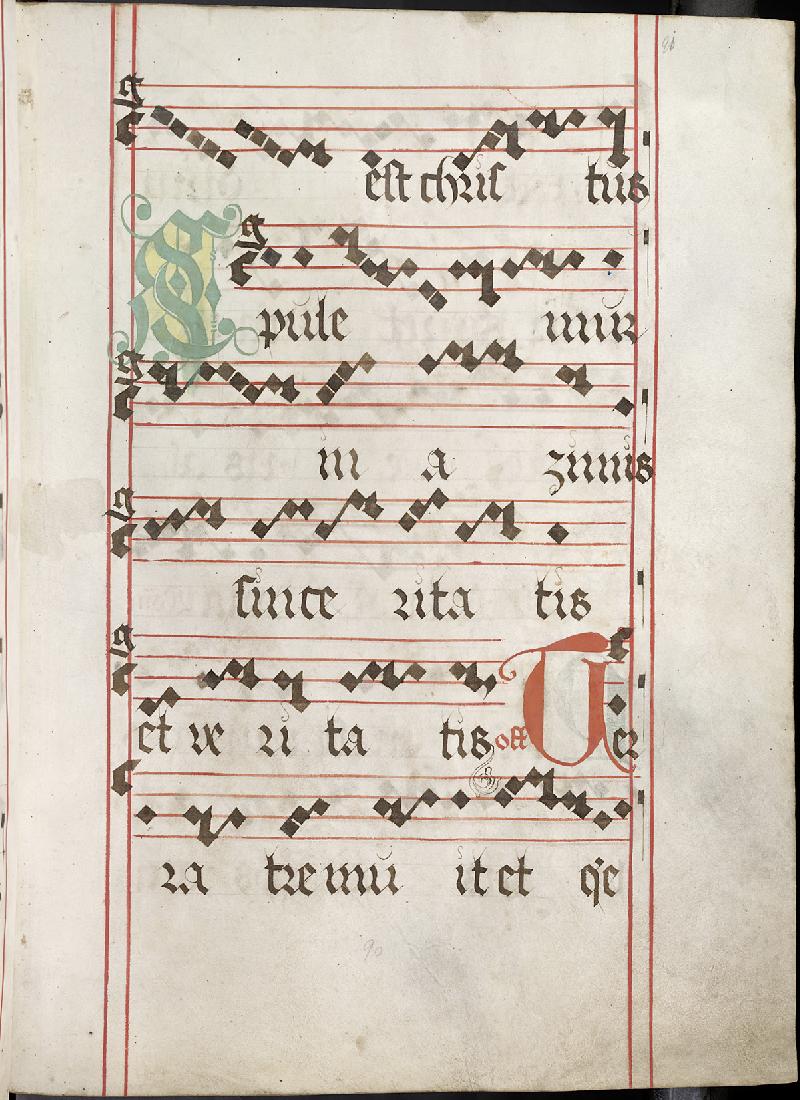 est chris tus
E pule mur
in a zimis
since rita tis
et ve ri ta tis off Ter
ra tremu it et q̇e
90